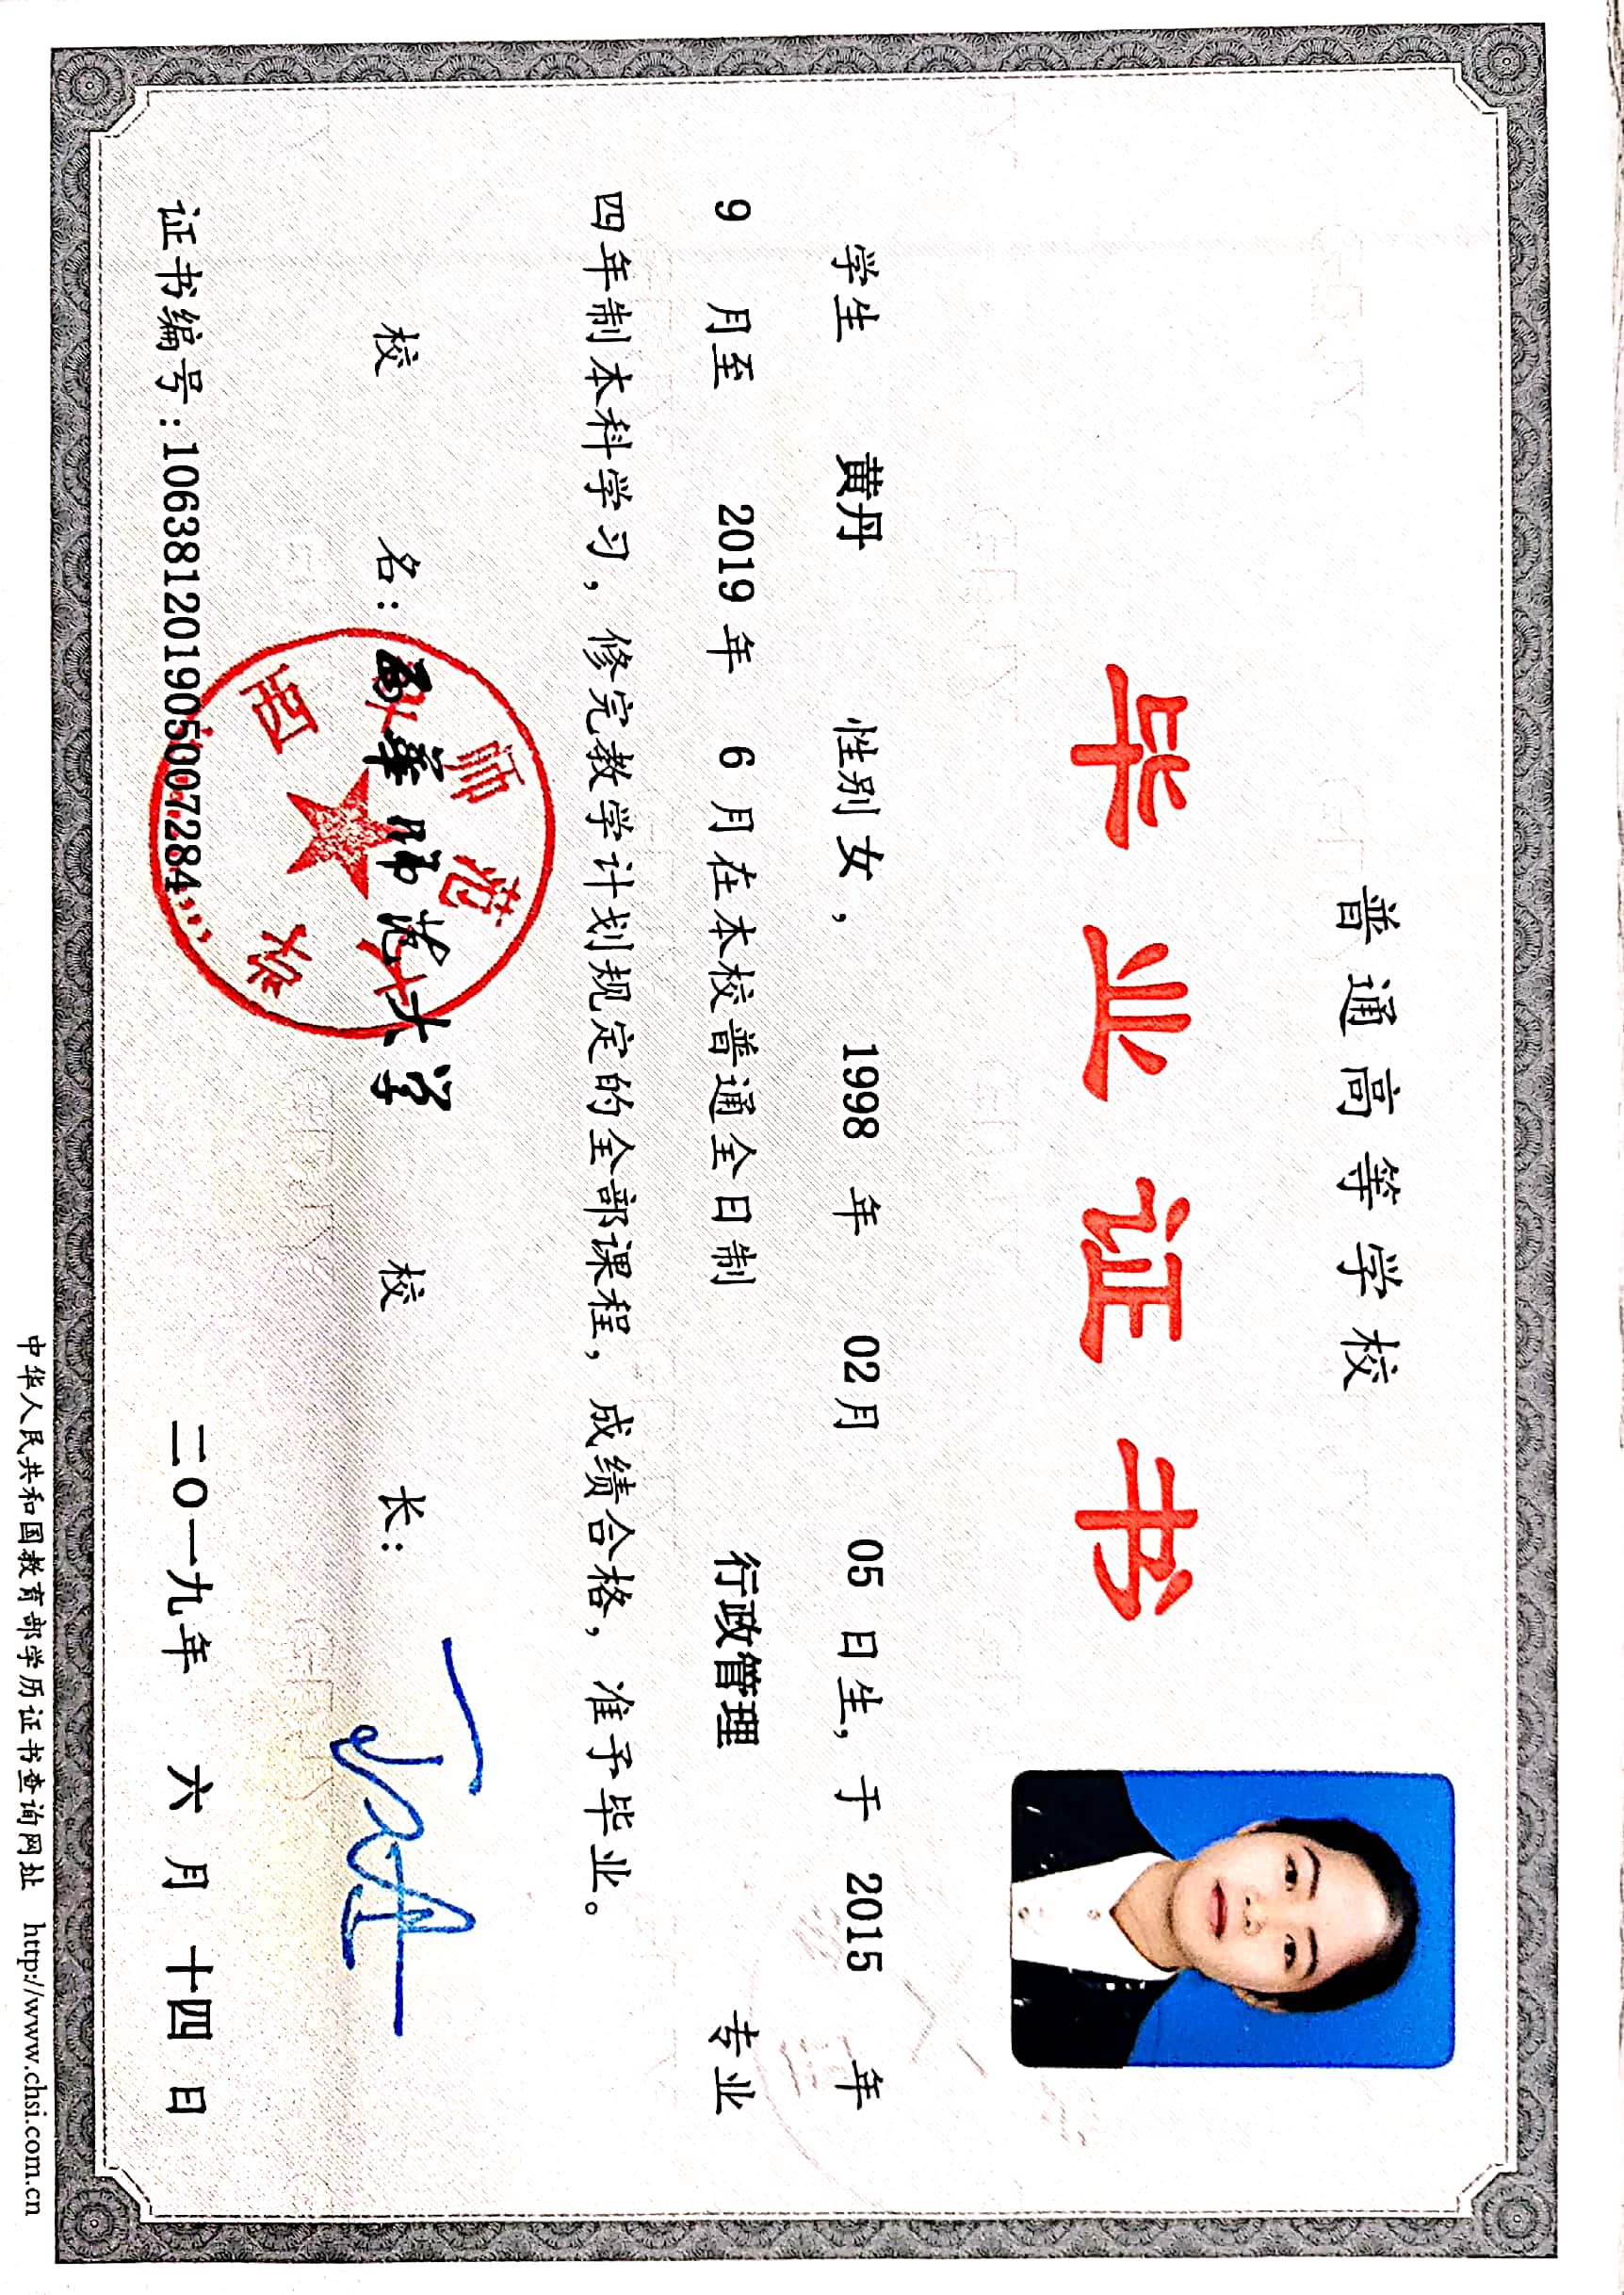 普通高等学校
毕业证书
学生 黄丹 性别女， 1998 年 02月 05 日生，于 2015 年
9 月至 2019年 6 月在本校普通全日制 行政管理 专业
四年制本科学习，修完教学计划规定的全部课程，成绩合格，准予毕业。
校 名：西华师范大学 校 长：
西华师范大学
证书编号:106381201905007284 二〇一九年 六 月 十四 日
中华人民共和国教育部学历证书查询网址 http://www.chsi.com.cn